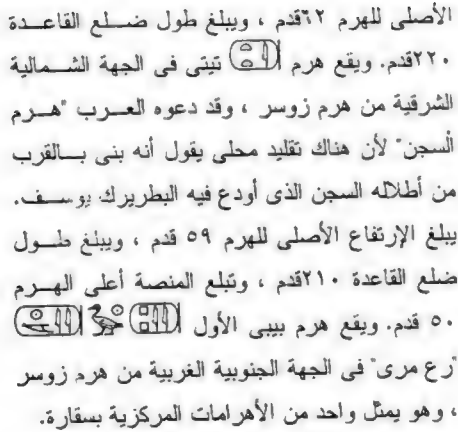 الأصلى للهرم ٦٢قدم ، ويبلغ طول ضلع القاعدة
٢٢٠قدم. ويقع هرم تيتى فى الجهة الشمالية
الشرقية من هرم زوسر ، وقد دعوه العرب "هرم
السجن" لأن هناك تقليد محلى يقول أنه بنى بالقرب
من أطلاله السجن الذى أودع فيه البطريرك يوسف.
يبلغ الإرتفاع الأصلى للهرم ٥٩ قدم ، ويبلغ طول
ضلع القاعدة ٢١٠قدم ، وتبلغ المنصة أعلى الهرم
٥٠ قدم. ويقع هرم بيبى الأول
"رع مرى" فى الجهة الجنوبية الغربية من هرم زوسر
، وهو يمثل واحد من الأهرامات المركزية بسقارة.